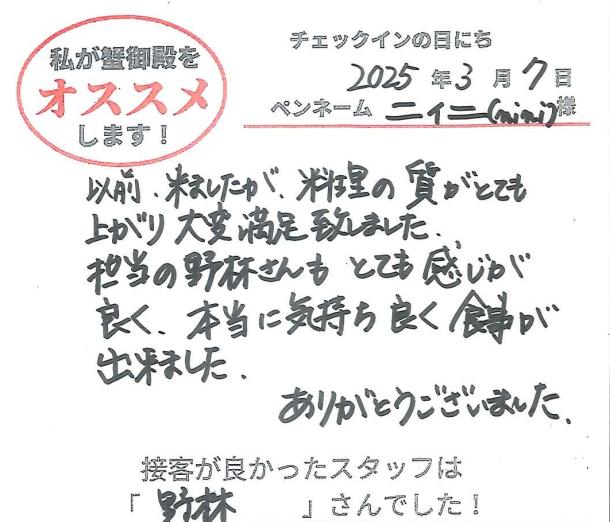 私が蟹御殿を
オススメ
します！
チェックインの日にち
2025 年 3 月 7 日
ペンネーム ニィニ(nini) 様
以前、来ましたが、料理の質がとても
上がり大変満足致しました。
担当の野林さんもとても感じが
良く、本当に気持ち良く食事が
出来ました。
ありがとうございました。
接客が良かったスタッフは
「 野林 」さんでした！